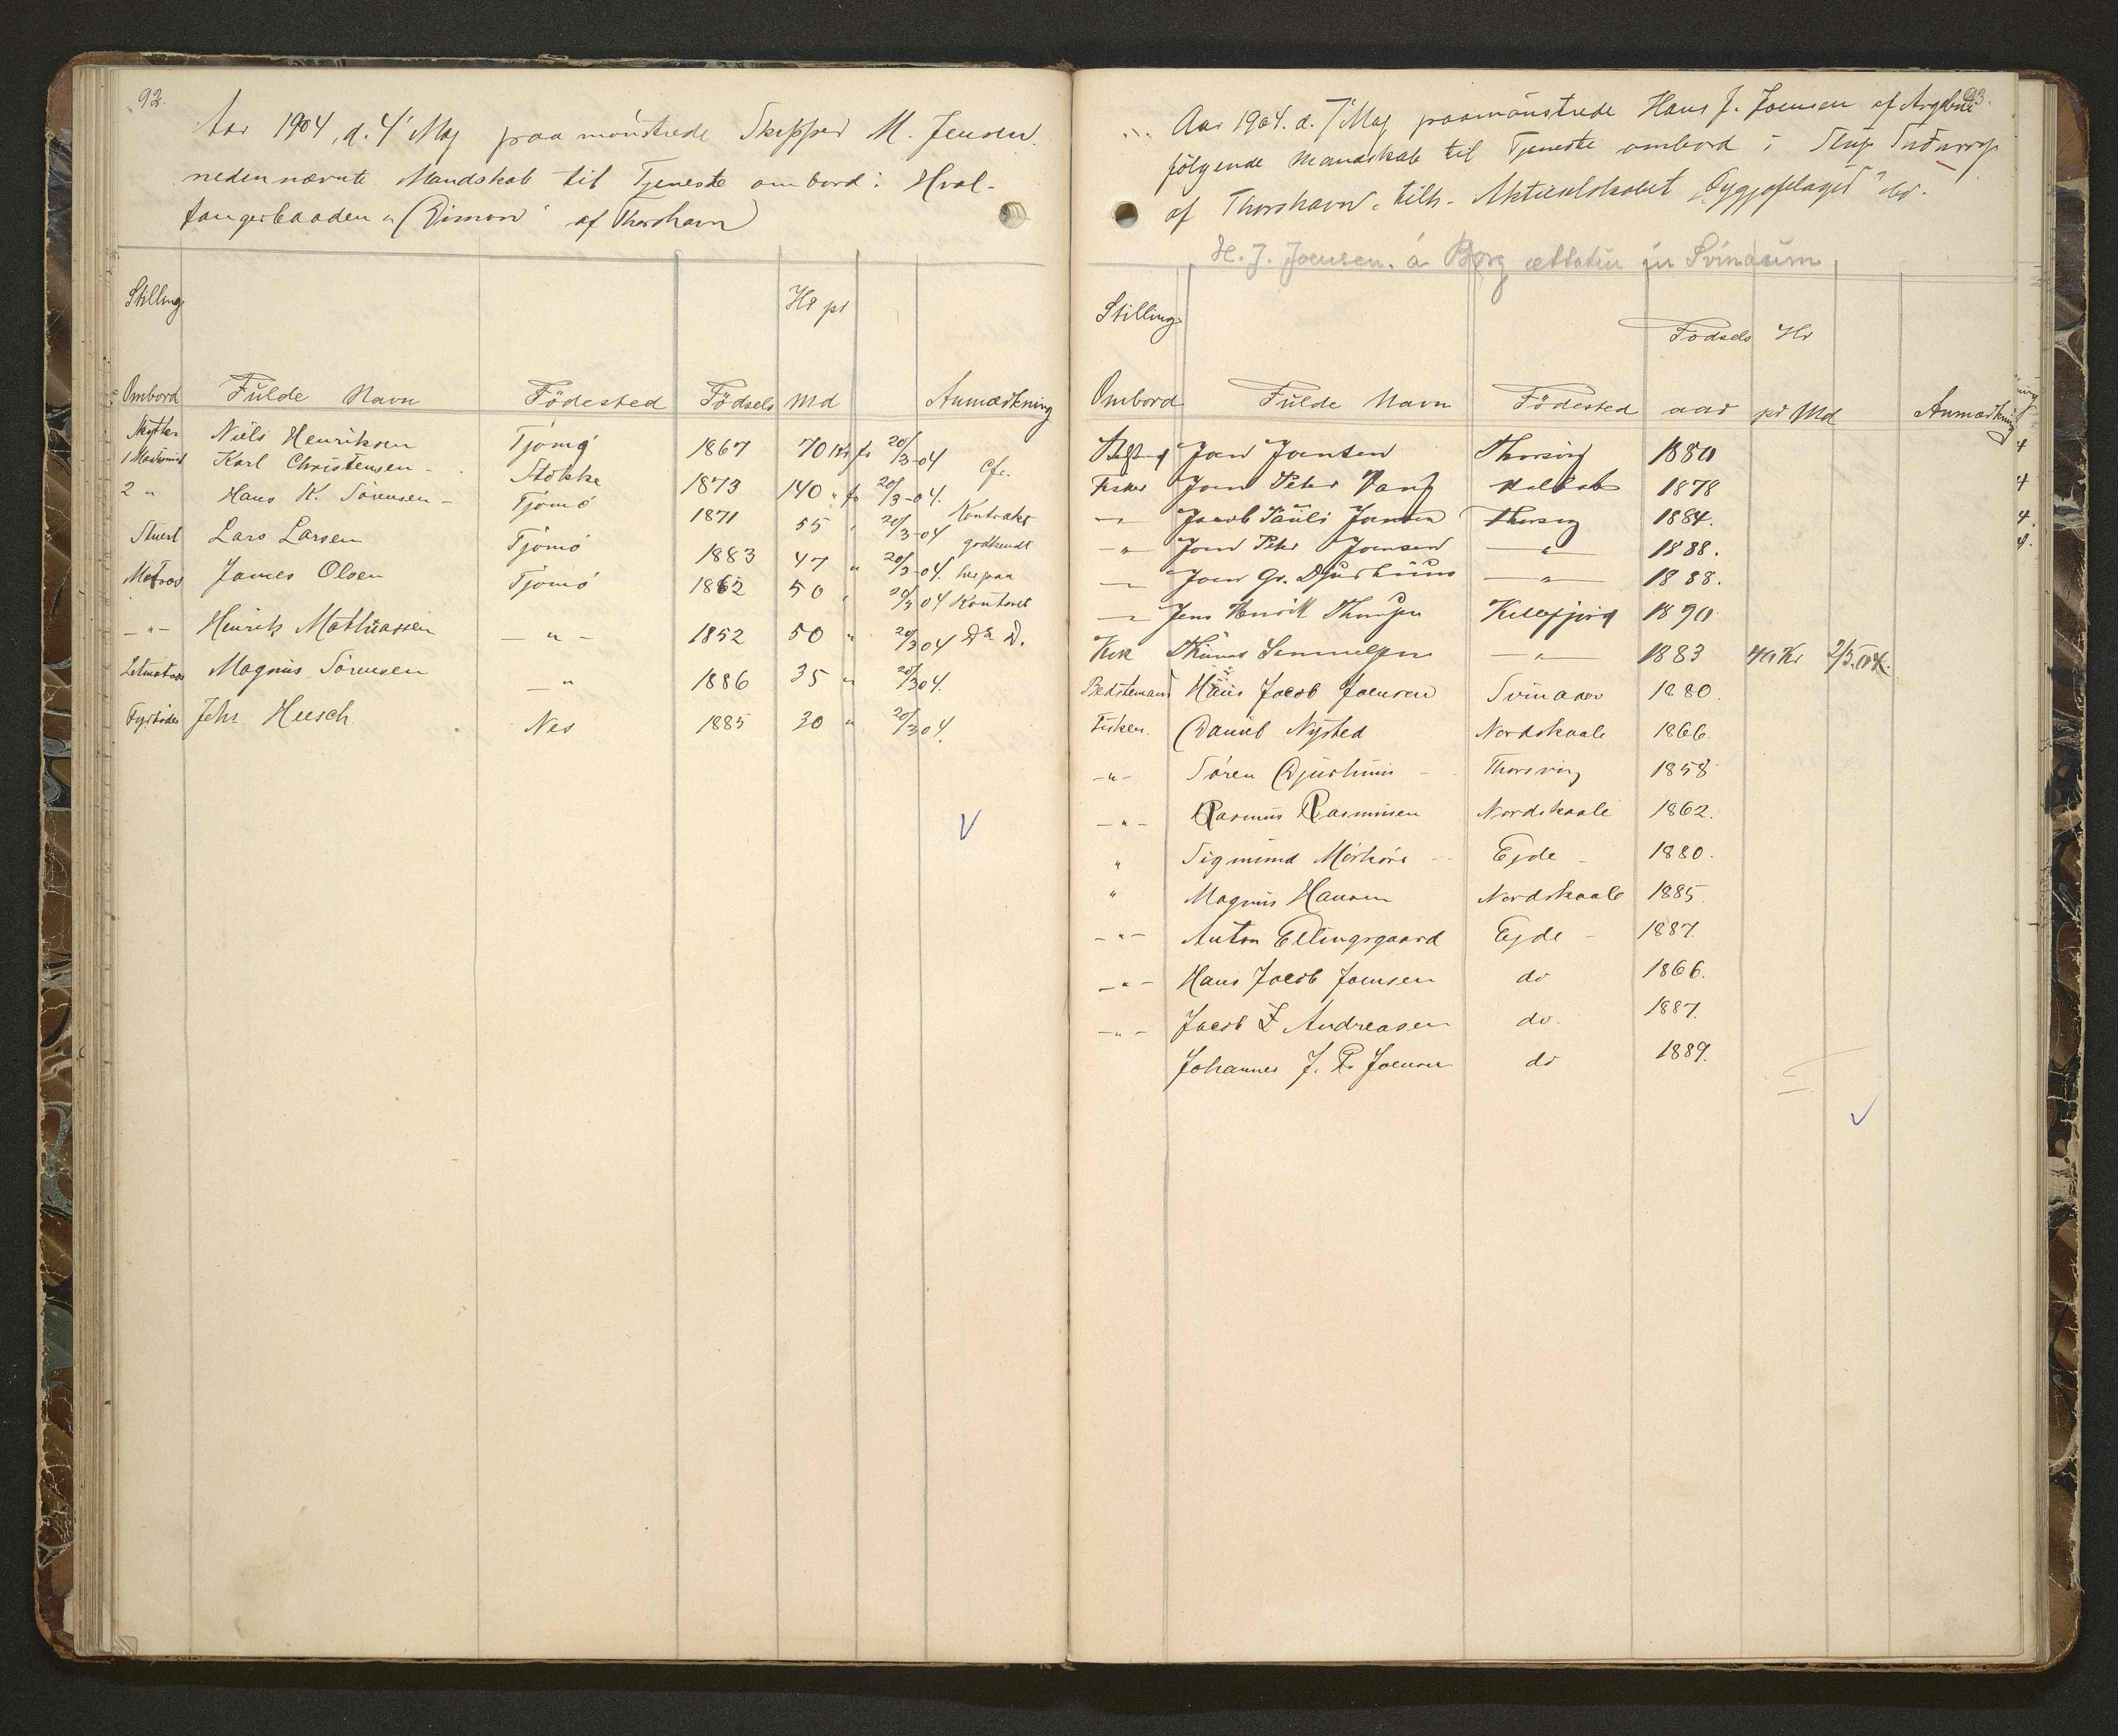 92.
Aar 1904, d. 4' Maj paa mönstrede Skipper M. Jensen
nedennævnte Mandskab til Tjeneste ombord i Hval-
fangerbaaden „Dimon" af Thorshavn
Stilling Kr pr
Ombord Fulde Navn Födested Födsels Md Anmærkning
Skytter Niels Henriksen Tjömö 1867 70 Kr fr 20/3-04
1 Maskinmst Karl Christensen - Stokke 1873 140 " fr 20/3-04. Cfr.
2 " Hans K. Sörensen - Tjömö 1871 55 " 20/3-04 Kontrakt
Stuert Lars Larsen Tjömö 1883 47 " 20/3-04. godkendt
Matros James Olsen Tjömö 1862 50 " 20/3 04 her paa Kontoret
-"- Henrik Mathiassen -"- 1852 50 " 20/3 04 D. D.
Letmatros Magnus Sörensen -" 1886 35 " 20/3 04.
Fyrböder Johs Heesch Nes 1885 30 " 20/3 04.
93.
Aar 1904. d. 7' Maj paamönstrede Hans J. Joensen af
fölgende Mandskab til Tjeneste ombord i Slup Suduroy
af Thorshavn, tilh. Aktieselskabet
H. J. Joensen. á Borg ættatur úr Svinaum
Stilling Födsels Kr
Ombord Fulde Navn Födested aar pr Md Anmærkning
Joen Joensen 1880
Fisker Joen Peter Vang 1878
-"- Jacob Pauli Joensen 1884.
-"- Joen Peter Joensen -"- 1888.
-"- Joen Gr. Djurhuus -"- 1888.
-"- Jens Henrik 1890
Kok Samuelsen -"- 1883 40 Kr 2/5.04.
Bedstemand Hans Jacob Joensen Svinaaer 1880.
Fisker. Daniel Nysted Nordskaale 1866.
-"- Sören Djurhuus - Thorsvig 1858
-"- Rasmus Rasmussen Nordskaale 1862.
" Sigmund Mörköre - Ejde - 1880.
" Magnus Hansen Nordskaale 1885.
-"- Anton Ellingsgaard Ejde - 1887.
-"- Hans Jacob Joensen do 1866.
-"- Jacob F Andreasen do. 1887.
Johannes J. P. Joensen do 1889.